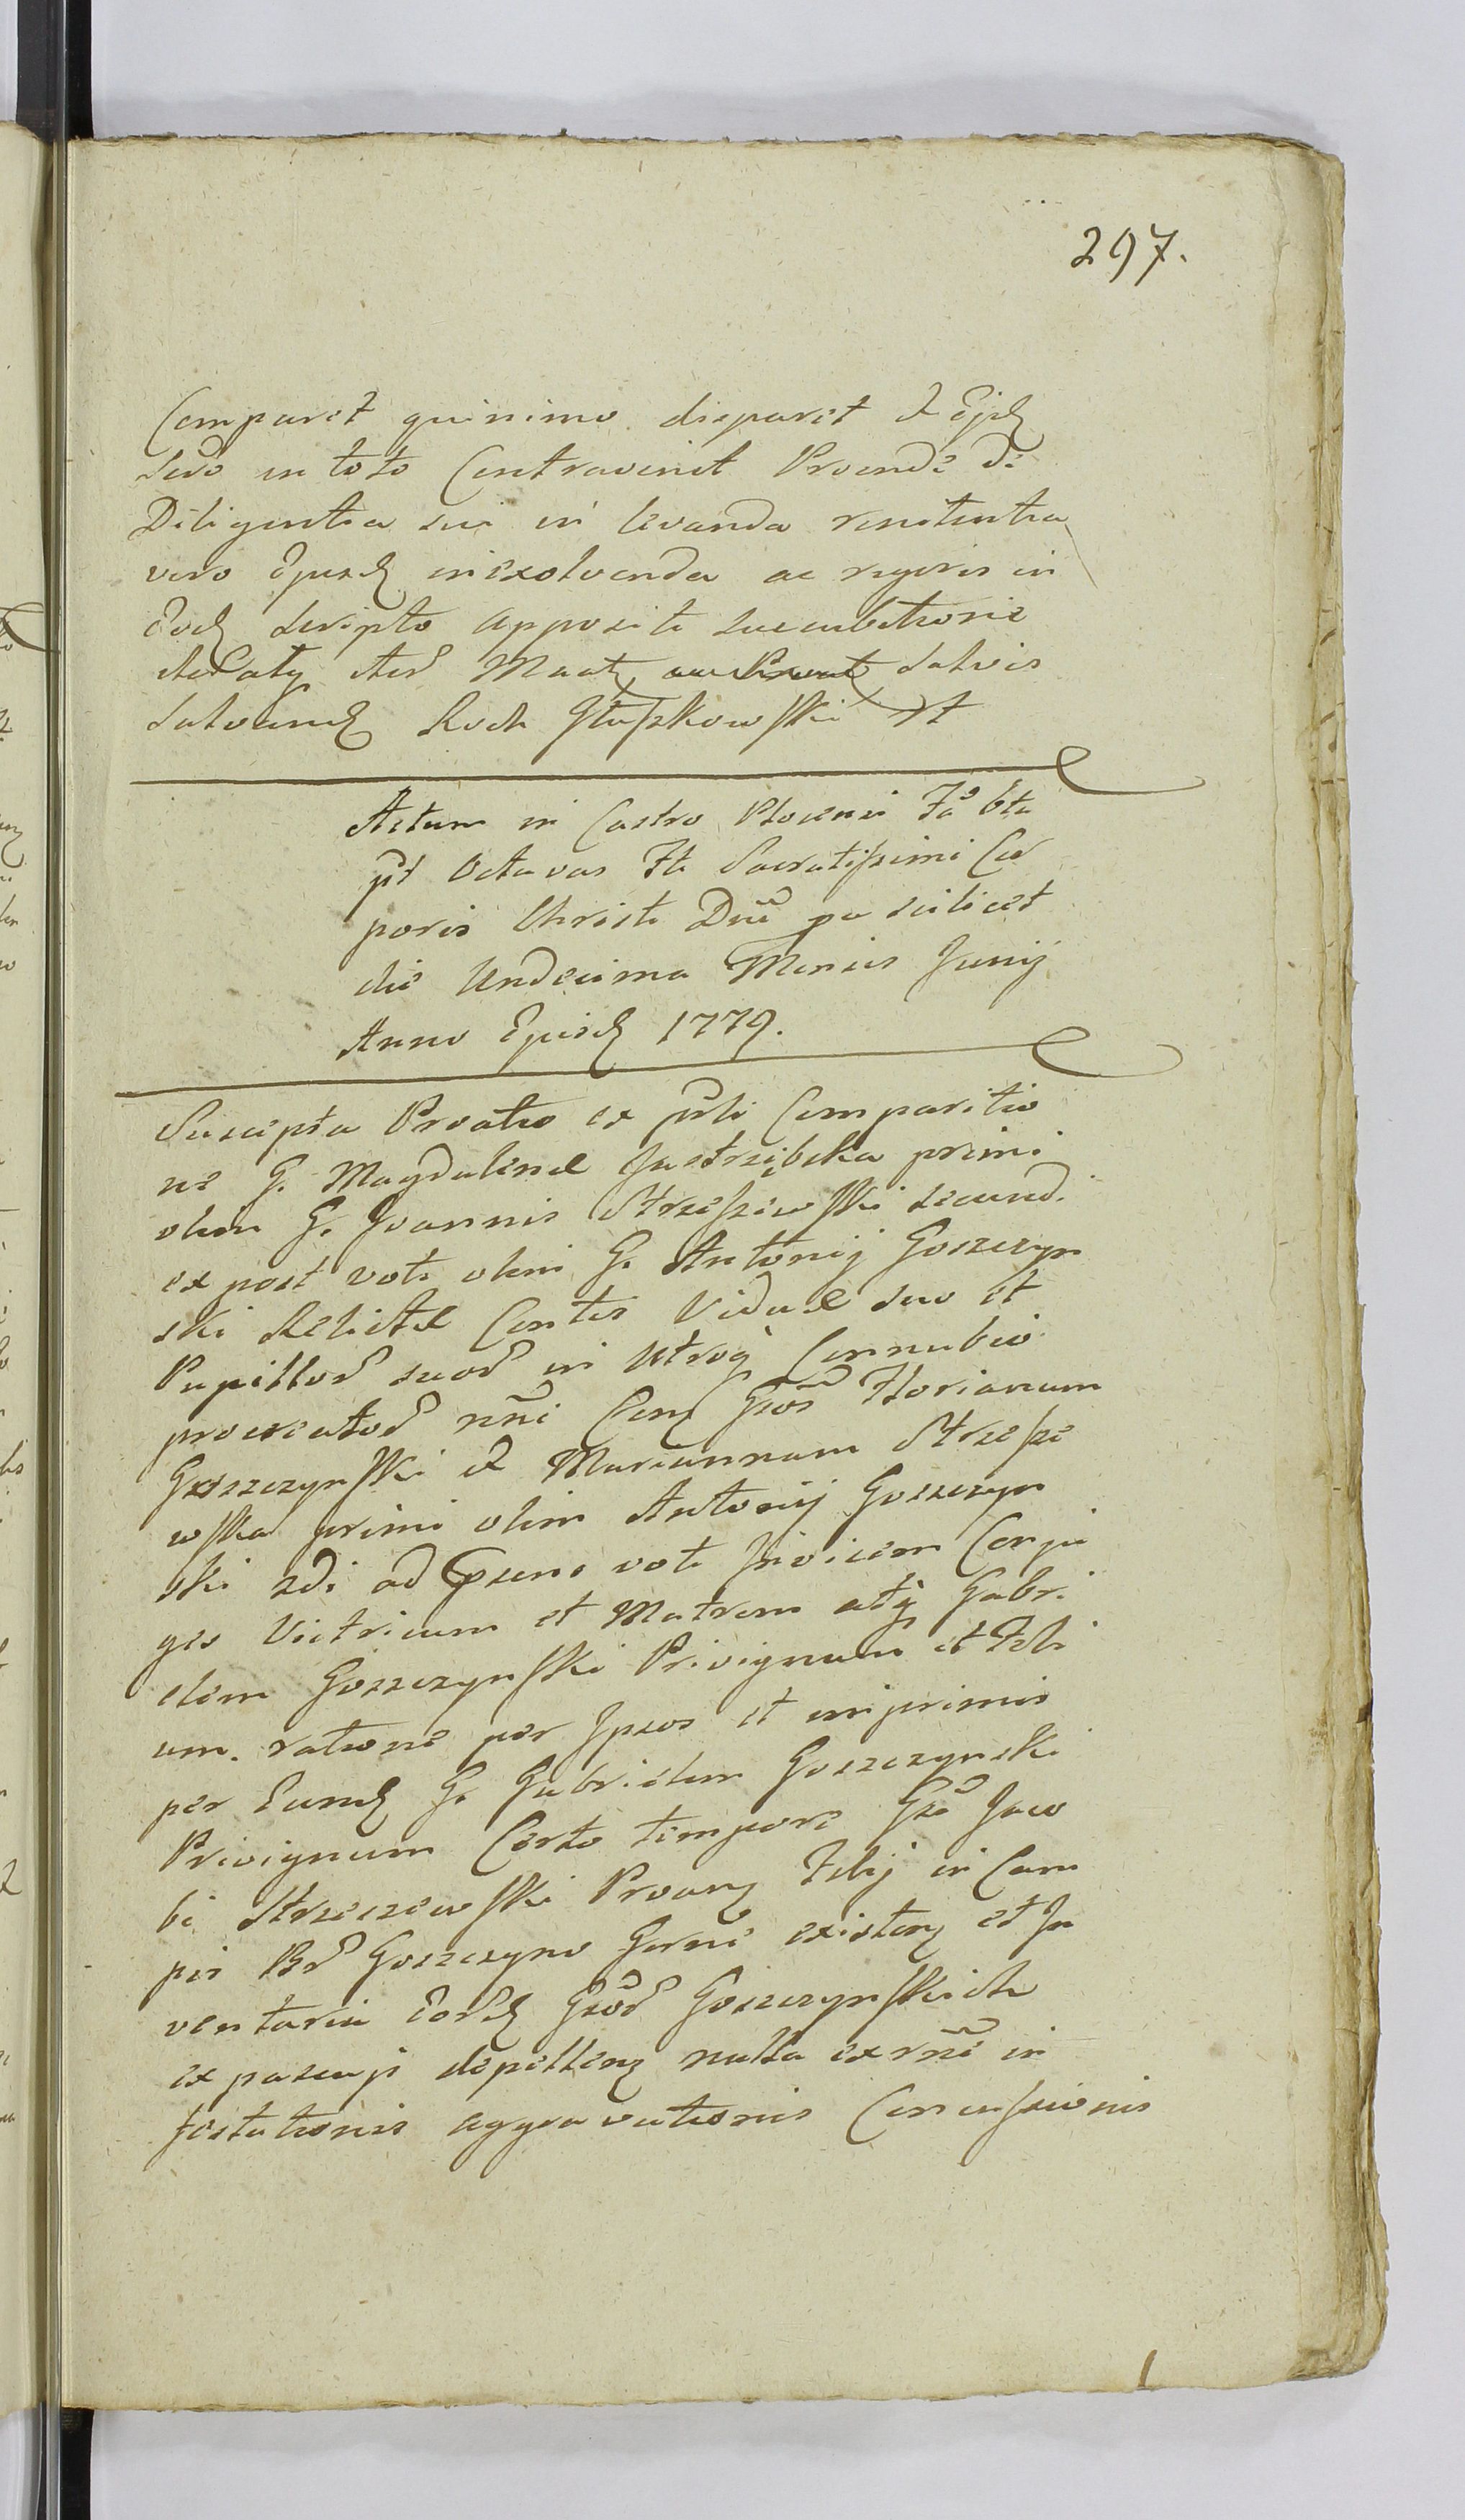 297.
Comparet quinimo disparet & Ejd
suo in toto Contravenit Proinde de
Diligentia sui in levanda renitentia
vero Ejusd inexolvenda ac rygoris in
Eod scripto appositi succubitionie
salvis
salvand Roch Głuszkowski mp
Actum in Castro Plocensi Fa 6ta
pt Octavas Fti Sacratissimi Cor
poris Christi Dni pa scilicet
die Undecima Mensis Junij
Anno Ejusd 1779.
Suscepta Protio ex pti Comparitio
ne G. Magdalenæ Jastrzębska primi
olim G. Joannis Strzeszewski secundi
ex post voti olim G. Antonij Goszczyn
ski Relictæ Contis Viduæ suo et
Pupillor suor in Utroq Connubio
procreator nni Con Gsos Florianum
Goszczynski & Mariannam Strzesze
wska primi olim Antonij Goszczyn
ski 2di ad psens voti Invicem Conju
ges Victricum et Matrem atq Gabri
elem Goszczynski Privignum et Fili
um. ratione per Ipsos et imprimis
per Eund G. Gabrielem Goszczynski
Privignum Certo tempore Gsi Jaco
bi Strzeszewski Filij in Cam
pis Br Goszczyno Gorne existen et In
ventaria Eord Gsor Goszczynskich
ex pascujs depellen nulla exnne in
festationis aggravationis Concussionis